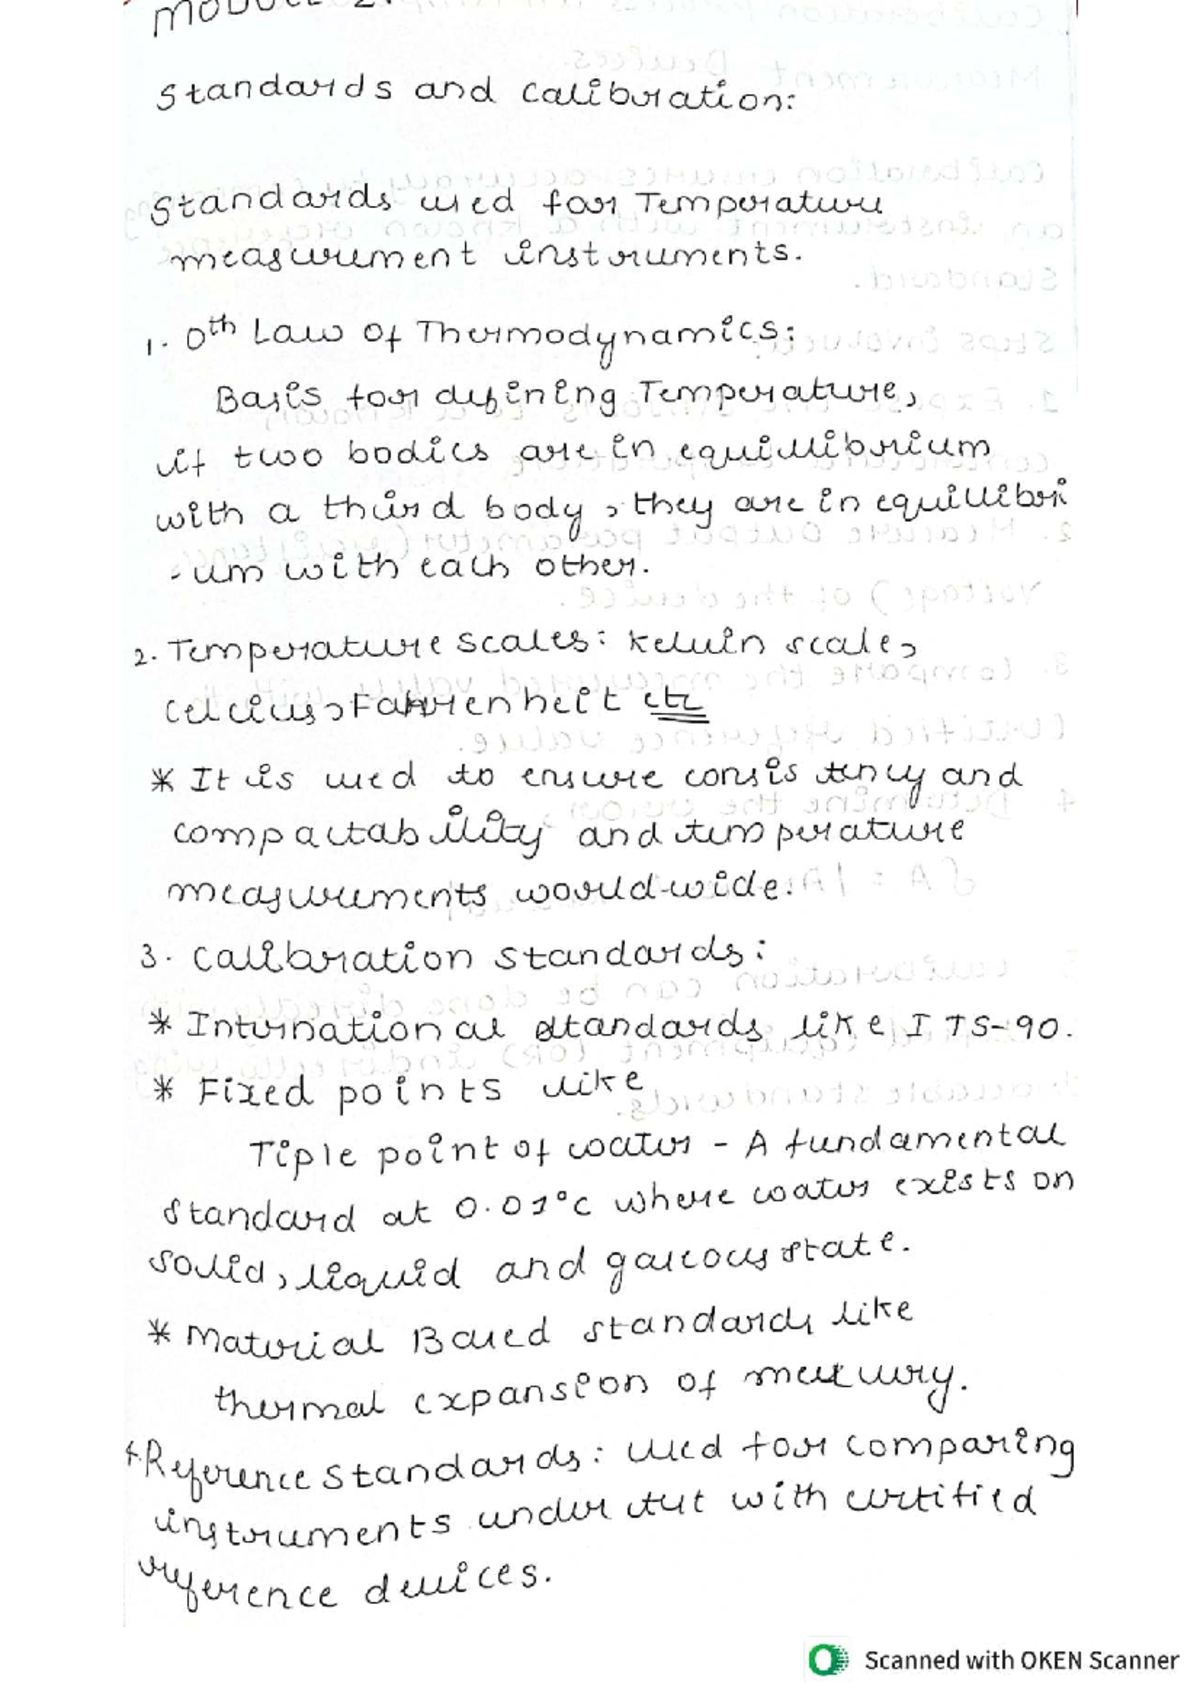 MODULE 2:
Standards and Calibration:
Standards used for Temperature
measurement instruments.
1. 0th Law Of Thermodynamics:
Basis for defining Temperature,
if two bodies are in equillibrium
with a third body, they are in equillibri
-um with each other.
2. Temperature scales: Kelvin scale,
celcius, Fahrenheit etc
* It is used to ensure consistency and
compactability and temperature
measurements world-wide.
3. Calibration standards:
* International standards like ITS-90.
* Fixed points like
Tiple point of water - A fundamental
standard at 0.01°c where water exists on
solid, liquid and gaseous state.
* Material Based standards like
thermal expansion of mercury.
4. Reference standards: Used for comparing
instruments under test with certified
reference devices.
Scanned with OKEN Scanner